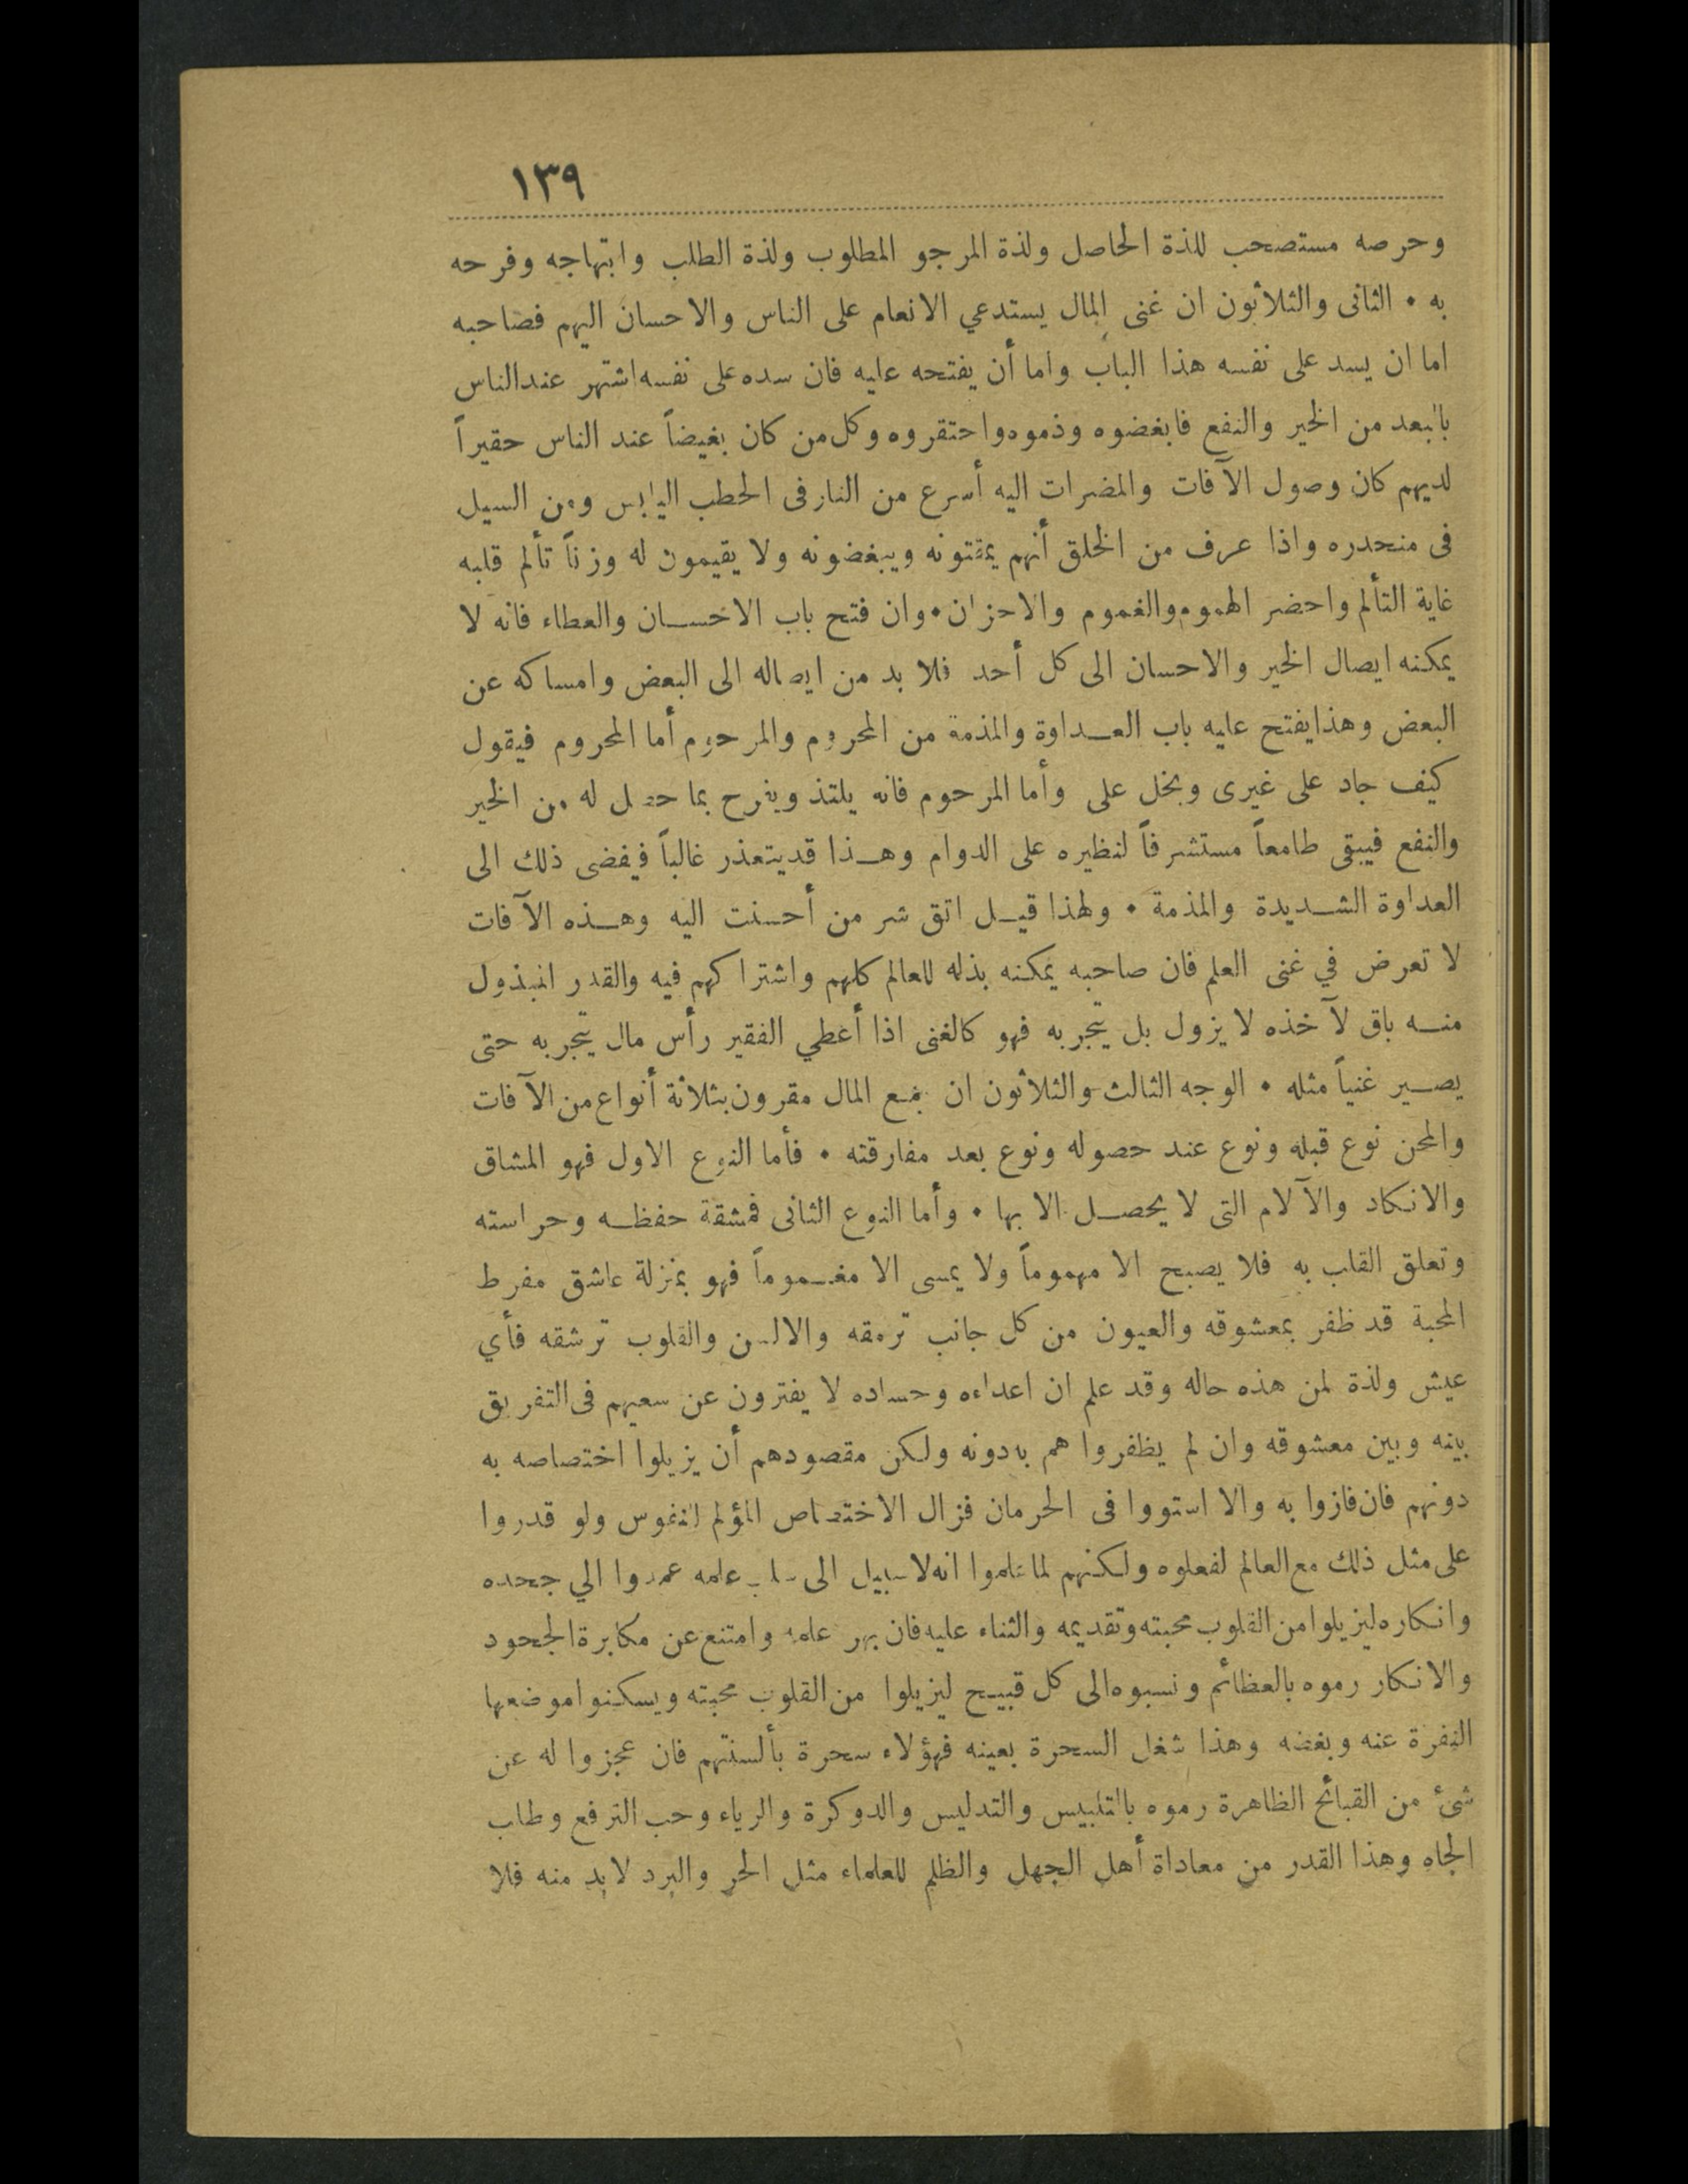 ١٣٩
وحرصه مستصحب للذة الحاصل ولذة المرجو المطلوب ولذة الطلب وابتهاجه وفرحه
به • الثانى والثلاثون ان غنى المال يستدعي الانعام على الناس والاحسان اليهم فصاحبه
اما ان يسد على نفسه هذا الباب واما أن يفتحه عليه فان سده على نفسه اشتهر عند الناس
بالبعد من الخير والنفع فابغضوه وذموه واحتقروه وكل من كان بغيضاً عند الناس حقيراً
لديهم كان وصول الآفات والمضرات اليه أسرع من النار فى الحطب اليابس ومن السيل
فى منحدره واذا عرف من الخلق أنهم يمقتونه ويبغضونه ولا يقيمون له وزناً تألم قلبه
غاية التألم واحضر الهموم والغموم والاحزان • وان فتح باب الاحسان والعطاء فانه لا
يمكنه ايصال الخير والاحسان الى كل أحد فلا بد من ايصاله الى البعض وامساكه عن
البعض وهذا يفتح عليه باب العداوة والمذمة من المحروم والمرحوم أما المحروم فيقول
كيف جاد على غيرى وبخل على وأما المرحوم فانه يلتذ ويفرح بما حصل له من الخير
والنفع فيبقى طامعاً مستشرفاً لنظيره على الدوام وهذا قد يتعذر غالباً فيفضى ذلك الى
العداوة الشديدة والمذمة • ولهذا قيل اتق شر من أحسنت اليه وهذه الآفات
لا تعرض في غنى العلم فان صاحبه يمكنه بذله للعالم كلهم واشتراكهم فيه والقدر المبذول
منه باق لآخذه لا يزول بل يتجر به فهو كالغنى اذا أعطي الفقير رأس مال يتجر به حتى
يصير غنياً مثله • الوجه الثالث والثلاثون ان جمع المال مقرون بثلاثة أنواع من الآفات
والمحن نوع قبله ونوع عند حصوله ونوع بعد مفارقته • فأما النوع الاول فهو المشاق
والانكاد والآلام التى لا يحصل الا بها • وأما النوع الثانى فمشقة حفظه وحراسته
وتعلق القلب به فلا يصبح الا مهموماً ولا يمسى الا مغموماً فهو بمنزلة عاشق مفرط
المحبة قد ظفر بمعشوقه والعيون من كل جانب ترمقه والالسن والقلوب ترشقه فأي
عيش ولذة لمن هذه حاله وقد علم ان اعداءه وحساده لا يفترون عن سعيهم فى التفريق
بينه وبين معشوقه وان لم يظفروا هم به دونه ولكن مقصودهم أن يزيلوا اختصاصه به
دونهم فان فازوا به والا استووا فى الحرمان فزال الاختصاص المؤلم للنفوس ولو قدروا
على مثل ذلك مع العالم لفعلوه ولكنهم لما علموا انه لا سبيل الى سلب علمه عمدوا الي جحده
وانكاره ليزيلوا من القلوب محبته وتقديمه والثناء عليه فان بهر علمه وامتنع عن مكابرة الجحود
والانكار رموه بالعظائم ونسبوه الى كل قبيح ليزيلوا من القلوب محبته ويسكنوا موضعها
النفرة عنه وبغضه وهذا شغل السحرة بعينه فهؤلاء سحرة بألسنتهم فان عجزوا له عن
شئ من القبائح الظاهرة رموه بالتلبيس والتدليس والدوكرة والرياء وحب الترفع وطلب
الجاه وهذا القدر من معاداة أهل الجهل والظلم للعلماء مثل الحر والبرد لابد منه فلا